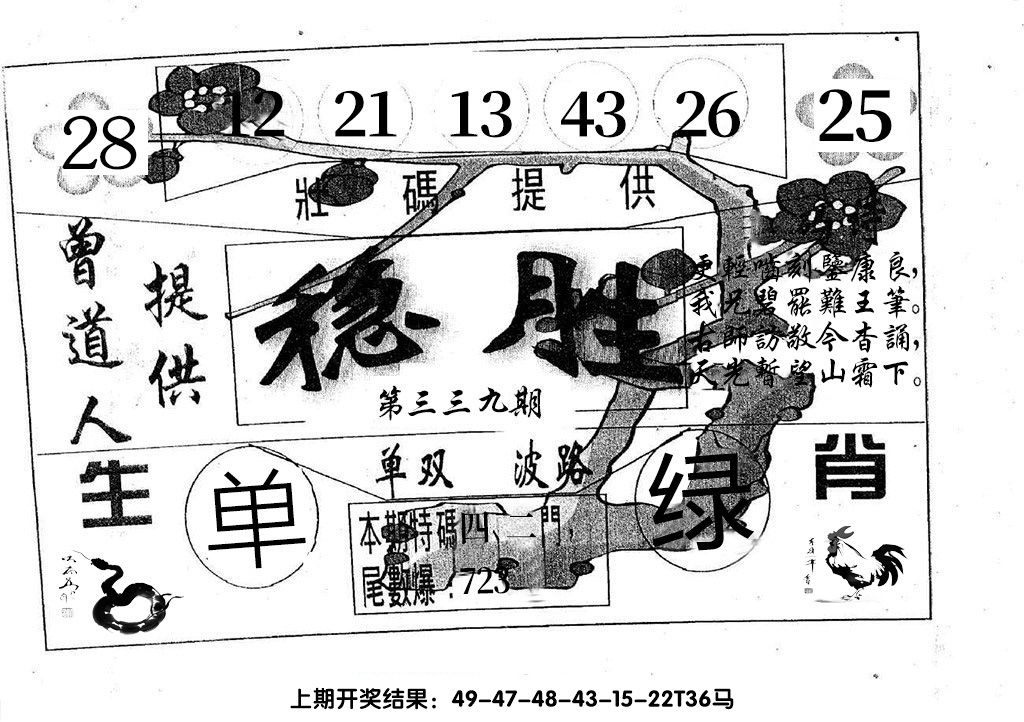 28 12 21 13 43 26 25
壯碼提供
曾道人
提供
稳胜
第三三九期
更輕嚙刻鑒康良，
我兄碧罷難王筆。
右師訪敬今杳誦，
天光暫望山霜下。
单双 波路
生
单
绿
肖
本期特碼四、二門，
尾數爆：723
上期开奖结果：49-47-48-43-15-22T36马